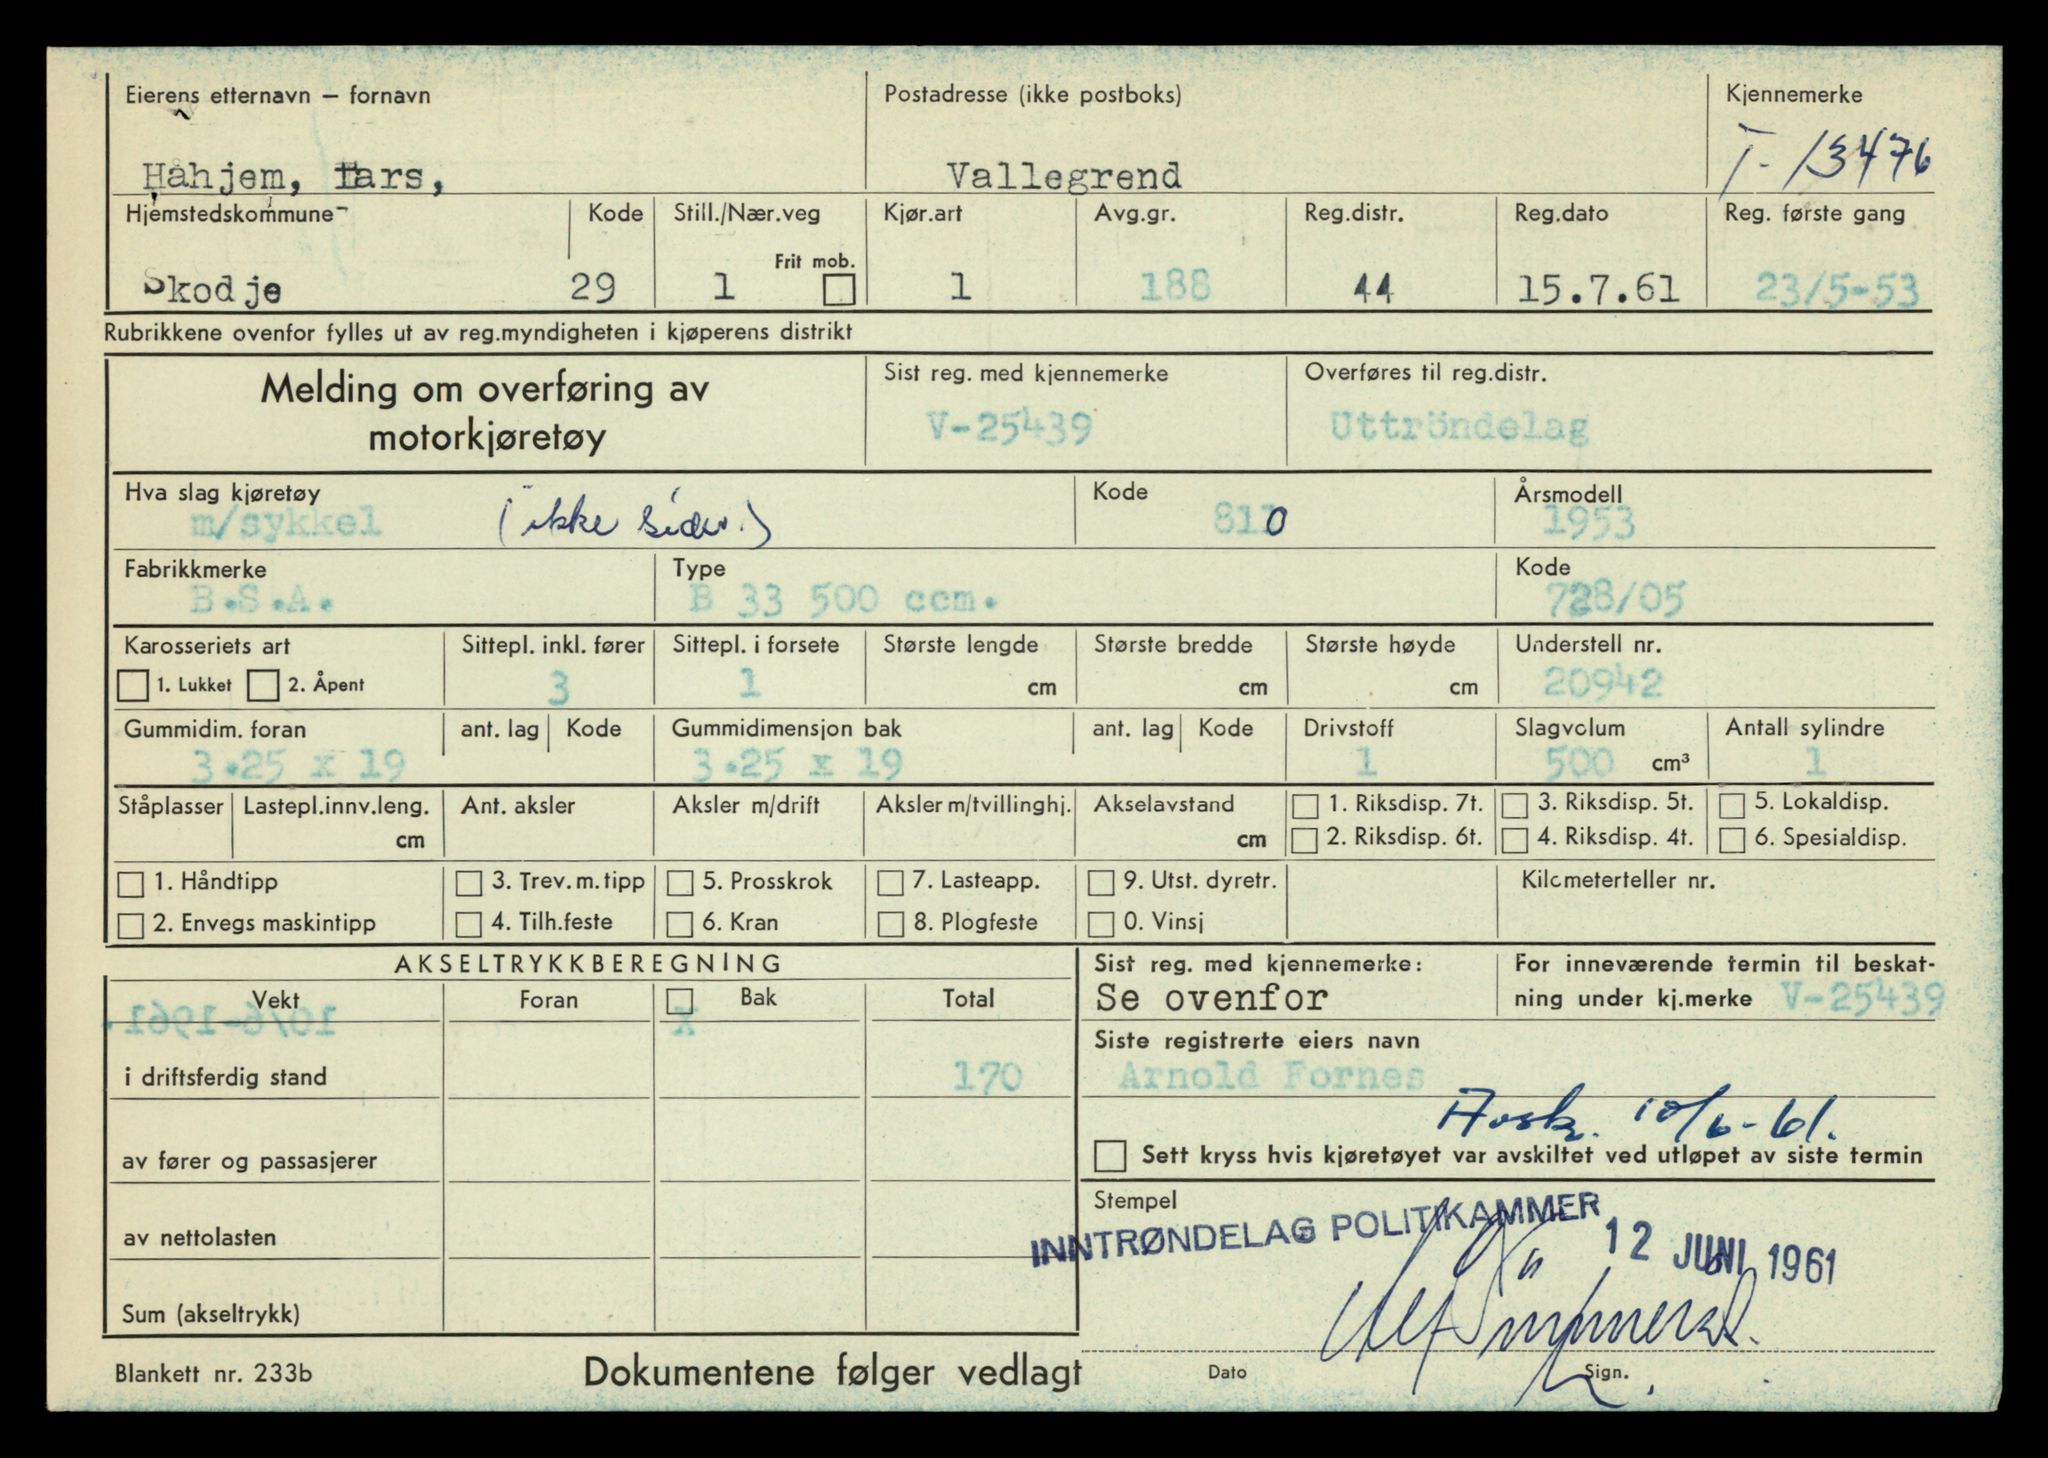 Eierens etternavn – fornavn
Postadresse (ikke postboks)
Kjennemerke
Håhjem, Lars,
Vallegrend
T-13476
Hjemstedskommune Kode Still./Nær.veg Kjør.art Avg.gr. Reg.distr. Reg.dato Reg. første gang
Frit mob.
Skodje 29 1 1 188 44 15.7.61 23/5-53
Rubrikkene ovenfor fylles ut av reg.myndigheten i kjøperens distrikt
Melding om overføring av
motorkjøretøy
Sist reg. med kjennemerke
V-25439
Overføres til reg.distr.
Uttröndelag
Hva slag kjøretøy Kode Årsmodell
m/sykkel (ikke sidev.) 8110 1953
Fabrikkmerke Type Kode
B.S.A. B 33 500 ccm. 728/05
Karosseriets art Sittepl. inkl. fører Sittepl. i forsete Største lengde Største bredde Største høyde Understell nr.
1. Lukket 2. Åpent 3 1 cm cm cm 20942
Gummidim. foran ant. lag Kode Gummidimensjon bak ant. lag Kode Drivstoff Slagvolum Antall sylindre
3.25 x 19 3.25 x 19 1 500 cm³ 1
Ståplasser Lastepl.innv.leng. Ant. aksler Aksler m/drift Aksler m/tvillinghj. Akselavstand 1. Riksdisp. 7t. 3. Riksdisp. 5t. 5. Lokaldisp.
cm cm 2. Riksdisp. 6t. 4. Riksdisp. 4t. 6. Spesialdisp.
1. Håndtipp 3. Trev. m. tipp 5. Prosskrok 7. Lasteapp. 9. Utst. dyretr. Kilometerteller nr.
2. Envegs maskintipp 4. Tilh.feste 6. Kran 8. Plogfeste 0. Vinsj
AKSELTRYKKBEREGNING
Vekt Foran Bak Total
10/6-1961. x
i driftsferdig stand 170
av fører og passasjerer
av nettolasten
Sum (akseltrykk)
Sist reg. med kjennemerke:
Se ovenfor
For inneværende termin til beskat-
ning under kj.merke V-25439
Siste registrerte eiers navn
Arnold Fornes
Avsk. 10/6-61.
Sett kryss hvis kjøretøyet var avskiltet ved utløpet av siste termin
Stempel
INNTRØNDELAG POLITIKAMMER
12 JUNI 1961
Dato Sign.
Blankett nr. 233b
Dokumentene følger vedlagt